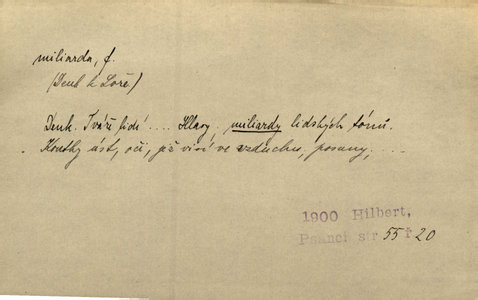 miliarda, f.
(Denk k Loře.)
Denk. Tváře lidí .... Hlavy, miliardy lidských tónů.
Koutky úst, očí, jež visí ve vzduchu, posuny, ....
1900 Hilbert,
Psanci str 55 ř 20